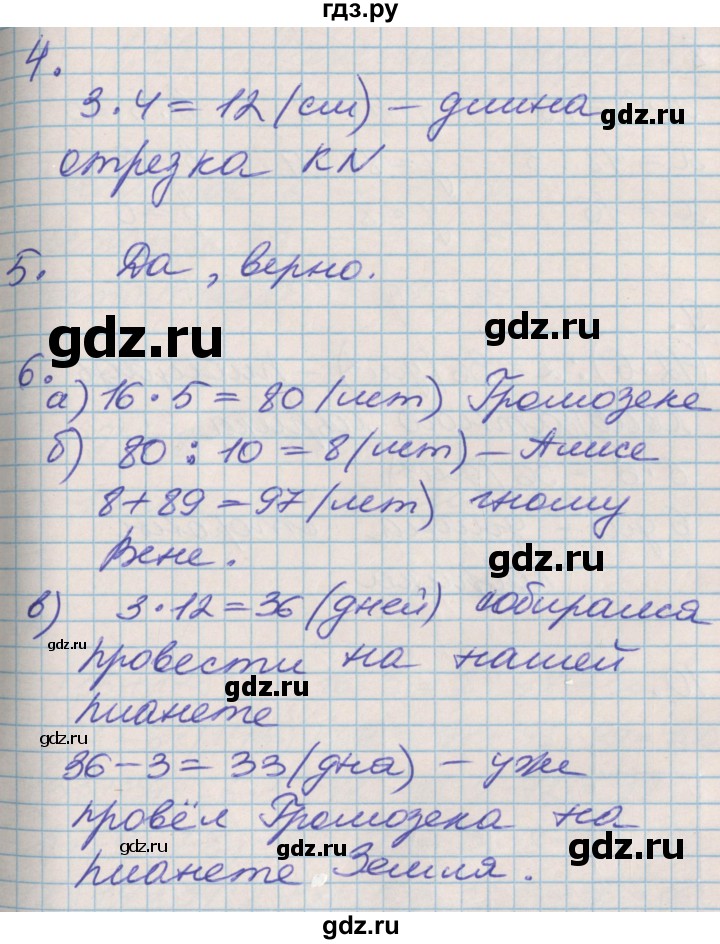 гдз.ру
4.
3·4=12 (см) – длина
gdz.ru
отрезка KN
5. Да, верно.
gdz.ru
gdz.ru
6.
а) 16·5=80 (лет) Громозеке
б) 80:10=8 (лет) – Алисе
8+89=97 (лет) гному
Вене.
gdz.ru
в) 3·12=36 (дней) собирался
gdz.ru
провести на нашей
gdz.ru
планете
gdz.ru
36–3=33 (дня) – уже
провёл Громозека на
gdz.ru
gdz.ru
gdz.ru
планете Земля.
gdz.ru